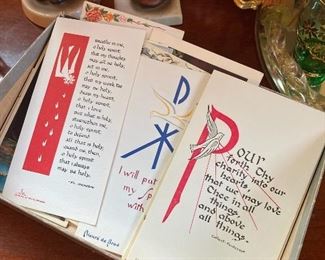 breathe in me,
o holy spirit,
that my thoughts
may all be holy;
act in me,
o holy spirit,
that my work too
may be holy;
draw my heart,
o holy spirit,
that i love
but what is holy;
strengthen me,
o holy spirit,
to defend
all that is holy;
guard me, then,
o holy spirit,
that i always
may be holy.
I will put
my sp
with
Pour
forth Thy
Charity into our
hearts,
that we may love
Thee in all
things,
and above
all things.